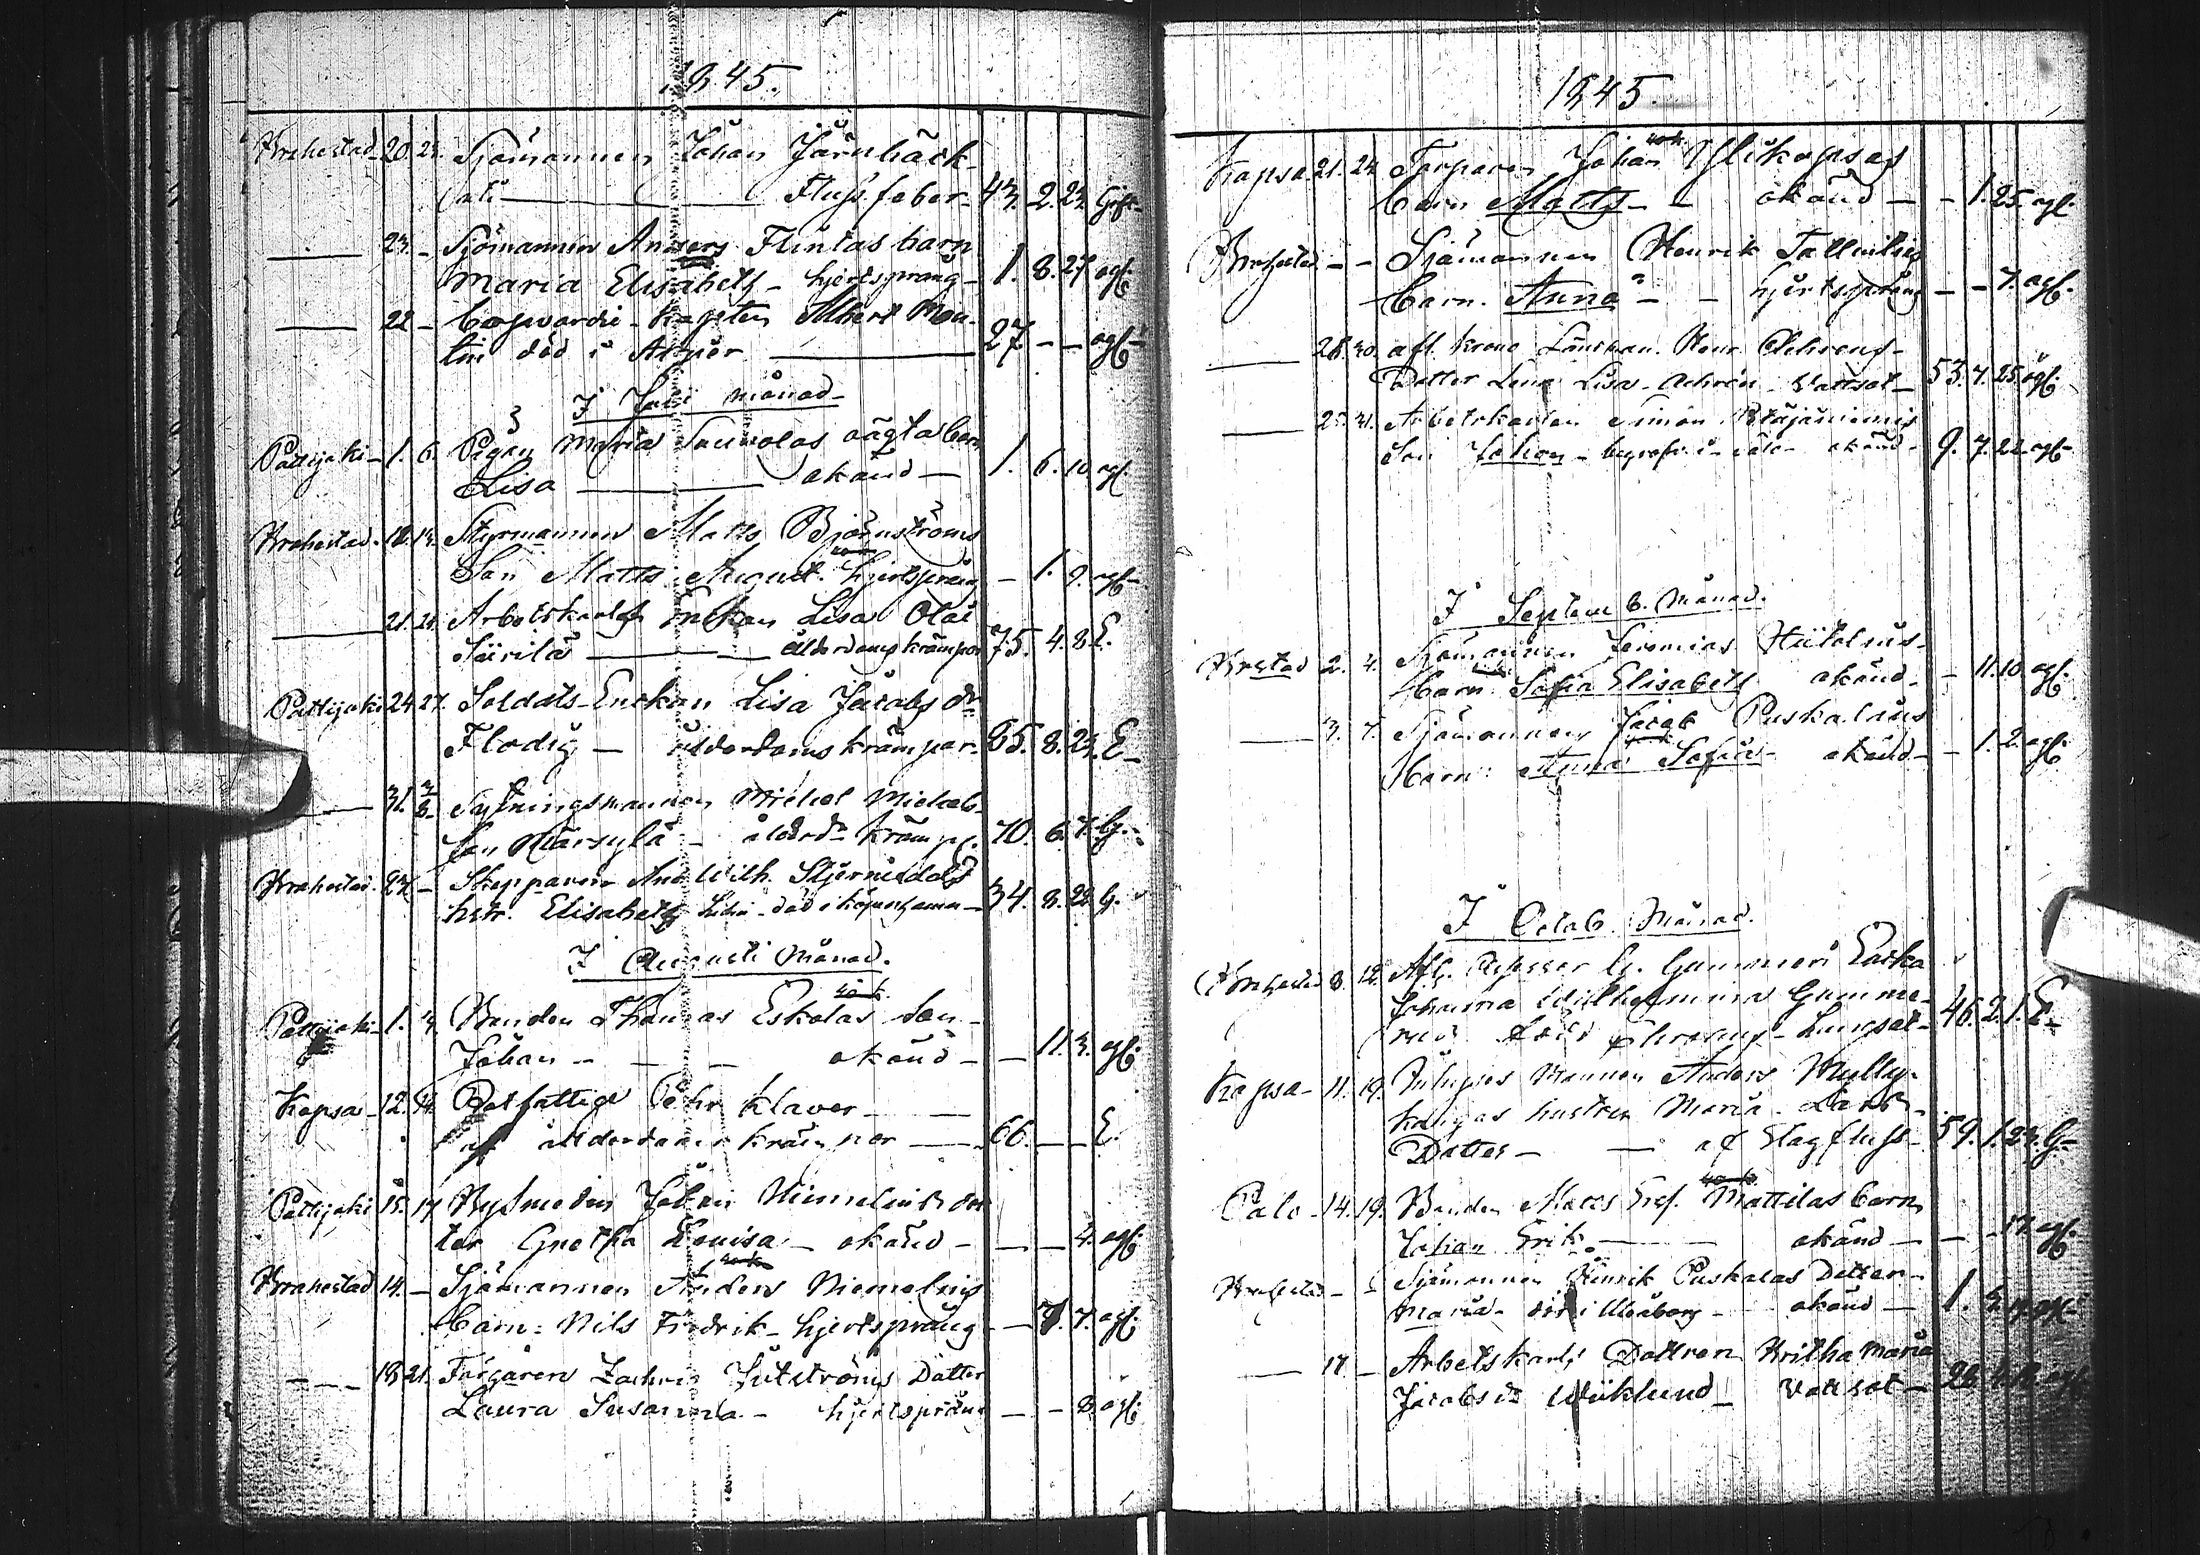 1845.
Brahestad 20. 23. Sjömannen Johan Järnbäck
Flussfeber 43. 2. 23. Gift
23. Sjömannen Anders Flintas barn
Maria Elisabeth - hjertsprång - 1. 8. 27 ogf.
22 - Coopvardie-Kapten Albert Mon-
tin död i 27 - - ogf.
I Julii månad
Pattijoki 1. 6. Pigan Maria Saunolas oägta barn
Lisa okänd 1. 6. 10 ogf.
Brahestad 12. 13. Styrmannen Matts Björnströms
Son Matts August. hjertsprång - 1. 9. ogf.
21. 24. Arbetskarls Enkan Lisa Olai
Siirilä ålderdomskrämpor 75. 4. 8. E.
Pattijoki 24. 27. Soldats-Enckan Lisa Jacobs dr
Flodig - ålderdoms krämpor. 85. 8. 23. E
31. 3/8 Sytningsmannen Michel Michels
son - ålderds krämp. 70. 6. 7. G.
Brahestad 27. - Skepparen And. Wilh. Stjernedals
hstr. Elisabeth död i Köpenhamn 34. 8. 22 G.
I Augusti Månad.
Pattijoki 1. 3. Bonden Thomas Eskolas son
Johan - - - okänd - - 11. 3. ogf.
Kopsa 12. 14. Rotfattige Pehr Klaver
af ålderdoms krämpor 66. - - E.
Pattijoki 15. 17 Bysmeden Johan Himelinds dot
ter Gretha Lovisa - okänd - - - 4. ogf.
Brahestad 14. - Sjömannen Anders Niemelnis
barn: Nils Fredrik - hjertsprång - 7. 7. ogf.
18 21. Färgaren Zachris Jutströms Dotter
Laura Susanna - hjertsprång - - 8. ogf.
1845.
Kopsa 21. 24. Torparen Johan Ylikopsas
barn Matts - - okänd - - 1. 25. ogf.
Brahestad - - Sjömannen Henrik
barn. Anna - - hjertsprång - - 7. ogf.
28. 30. afl. Krono Länsman. Henr.
Dotter Lena Lisa - Vattsot 53. 7. 25. ogf.
25. 31. Arbetskarlen Simon Petäjäniemis
Son Johan - begrafv. i okänd 9. 7. 22 ogf.
I Septemb. Månad.
Brstad 2. 4. Sjömannen Jeremias
Barn Sofia Elisabeth okänd - 11. 10 ogf.
3. 7. Sjömannen Jacob Puskalas
Barn: Anna Sofia okänd - 1. 2. ogf.
I Octob. Månad.
Brahestad 8. 12. Afl. G. Gummeri Encka
Johanna Wilhelmina Gumme-
rus född - Lungsot 46. 2. 1. E
Kopsa 11. 19. Anders Mylly-
kangas hustru Maria Lars
Dotter - af Slagfluss 59. 1. 23. G
Palo 14. 19. Bonden Matts Gref. Mattilas barn
Johan Erik okänd - - 17. ogf.
Brahestad - - Sjömannen Henrik Puskalas Dotter
Maria - död i Uleåborg - okänd 1.
17 - Arbetskarls Dottren Britha Maria
Jacobs dr Wiiklund - Vattsot - 28